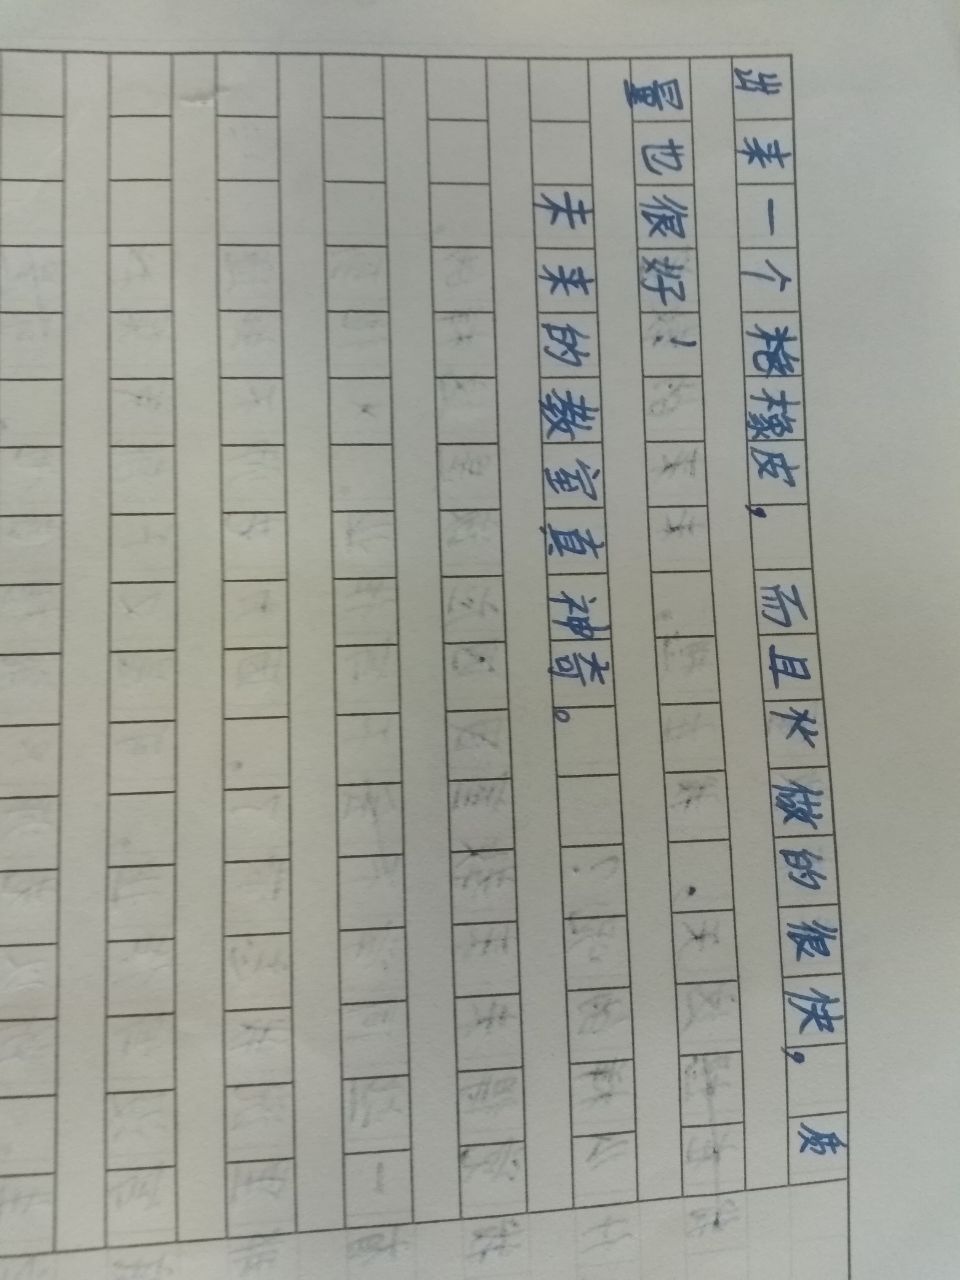 出来一个橡皮，而且水做的很快，质
量也很好！
未来的教室真神奇。